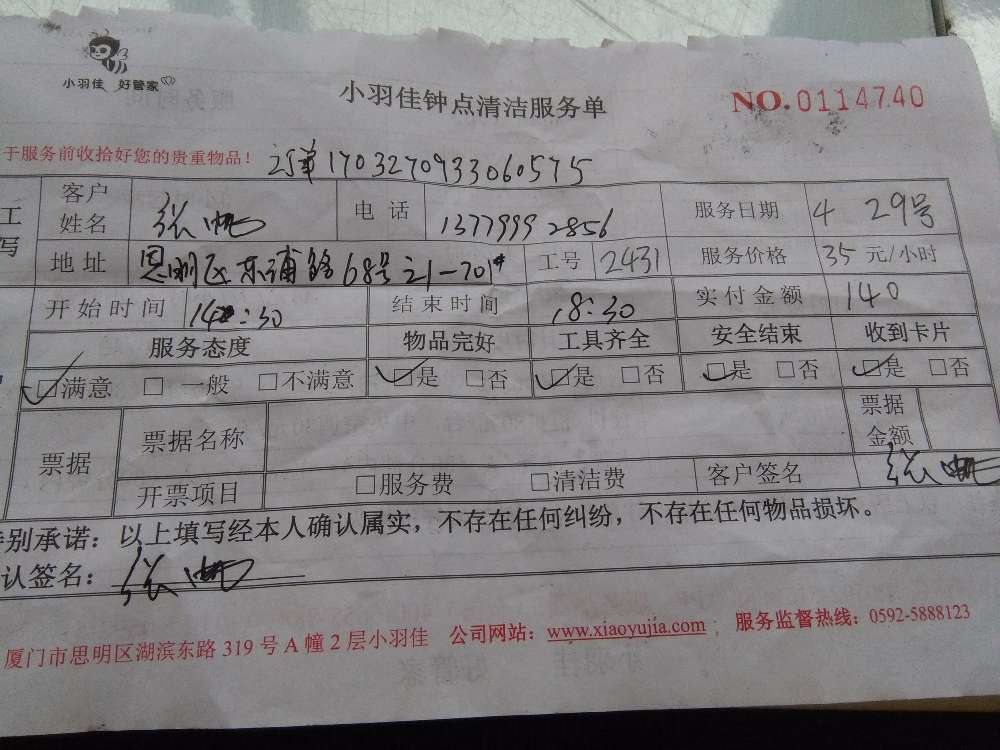 小羽佳 好管家
小羽佳钟点清洁服务单
NO.0114740
于服务前收拾好您的贵重物品！
订单1703270933060575
工 客户姓名 张帆 电话 13779992856 服务日期 4 29号
写 地址 思明区东浦路68号之1-701# 工号 2431 服务价格 35 元/小时
开始时间 14:30 结束时间 18:30 实付金额 140
服务态度 物品完好 工具齐全 安全结束 收到卡片
☑满意 □ 一般 □不满意 ☑是 □否 ☑是 □否 ☑是 □否 ☑是 □否
票据 票据名称 票据金额
开票项目 □服务费 □清洁费 客户签名 张帆
别承诺：以上填写经本人确认属实，不存在任何纠纷，不存在任何物品损坏。
认签名：张帆
厦门市思明区湖滨东路 319 号 A 幢 2 层小羽佳 公司网站：www.xiaoyujia.com ； 服务监督热线：0592-5888123